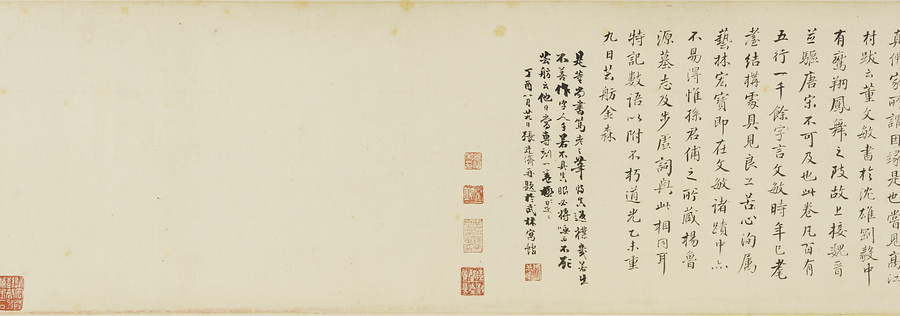 真佛家所謂因緣是也嘗見高江
村跋云董文敏書於沈雄劉毅中
有鸞翔鳳舞之致故上接魏晉
並驅唐宋不可及也此卷凡百有
五行一千餘字言文敏時年已耄
耋結構處具見良工苦心洵屬
藝林宏寶即在文敏諸蹟中亦
不易得惟孫君俌之所藏楊魯
源墓志及步虛詞與此相同耳
特記數語以附不朽道光乙未重
九日芸舫金森
是董尚書篤老之筆
不善作字人手若不具真眼必將
芸舫云他日當專刻一卷
丁酉八月廿日張廷濟再題於武林寓館